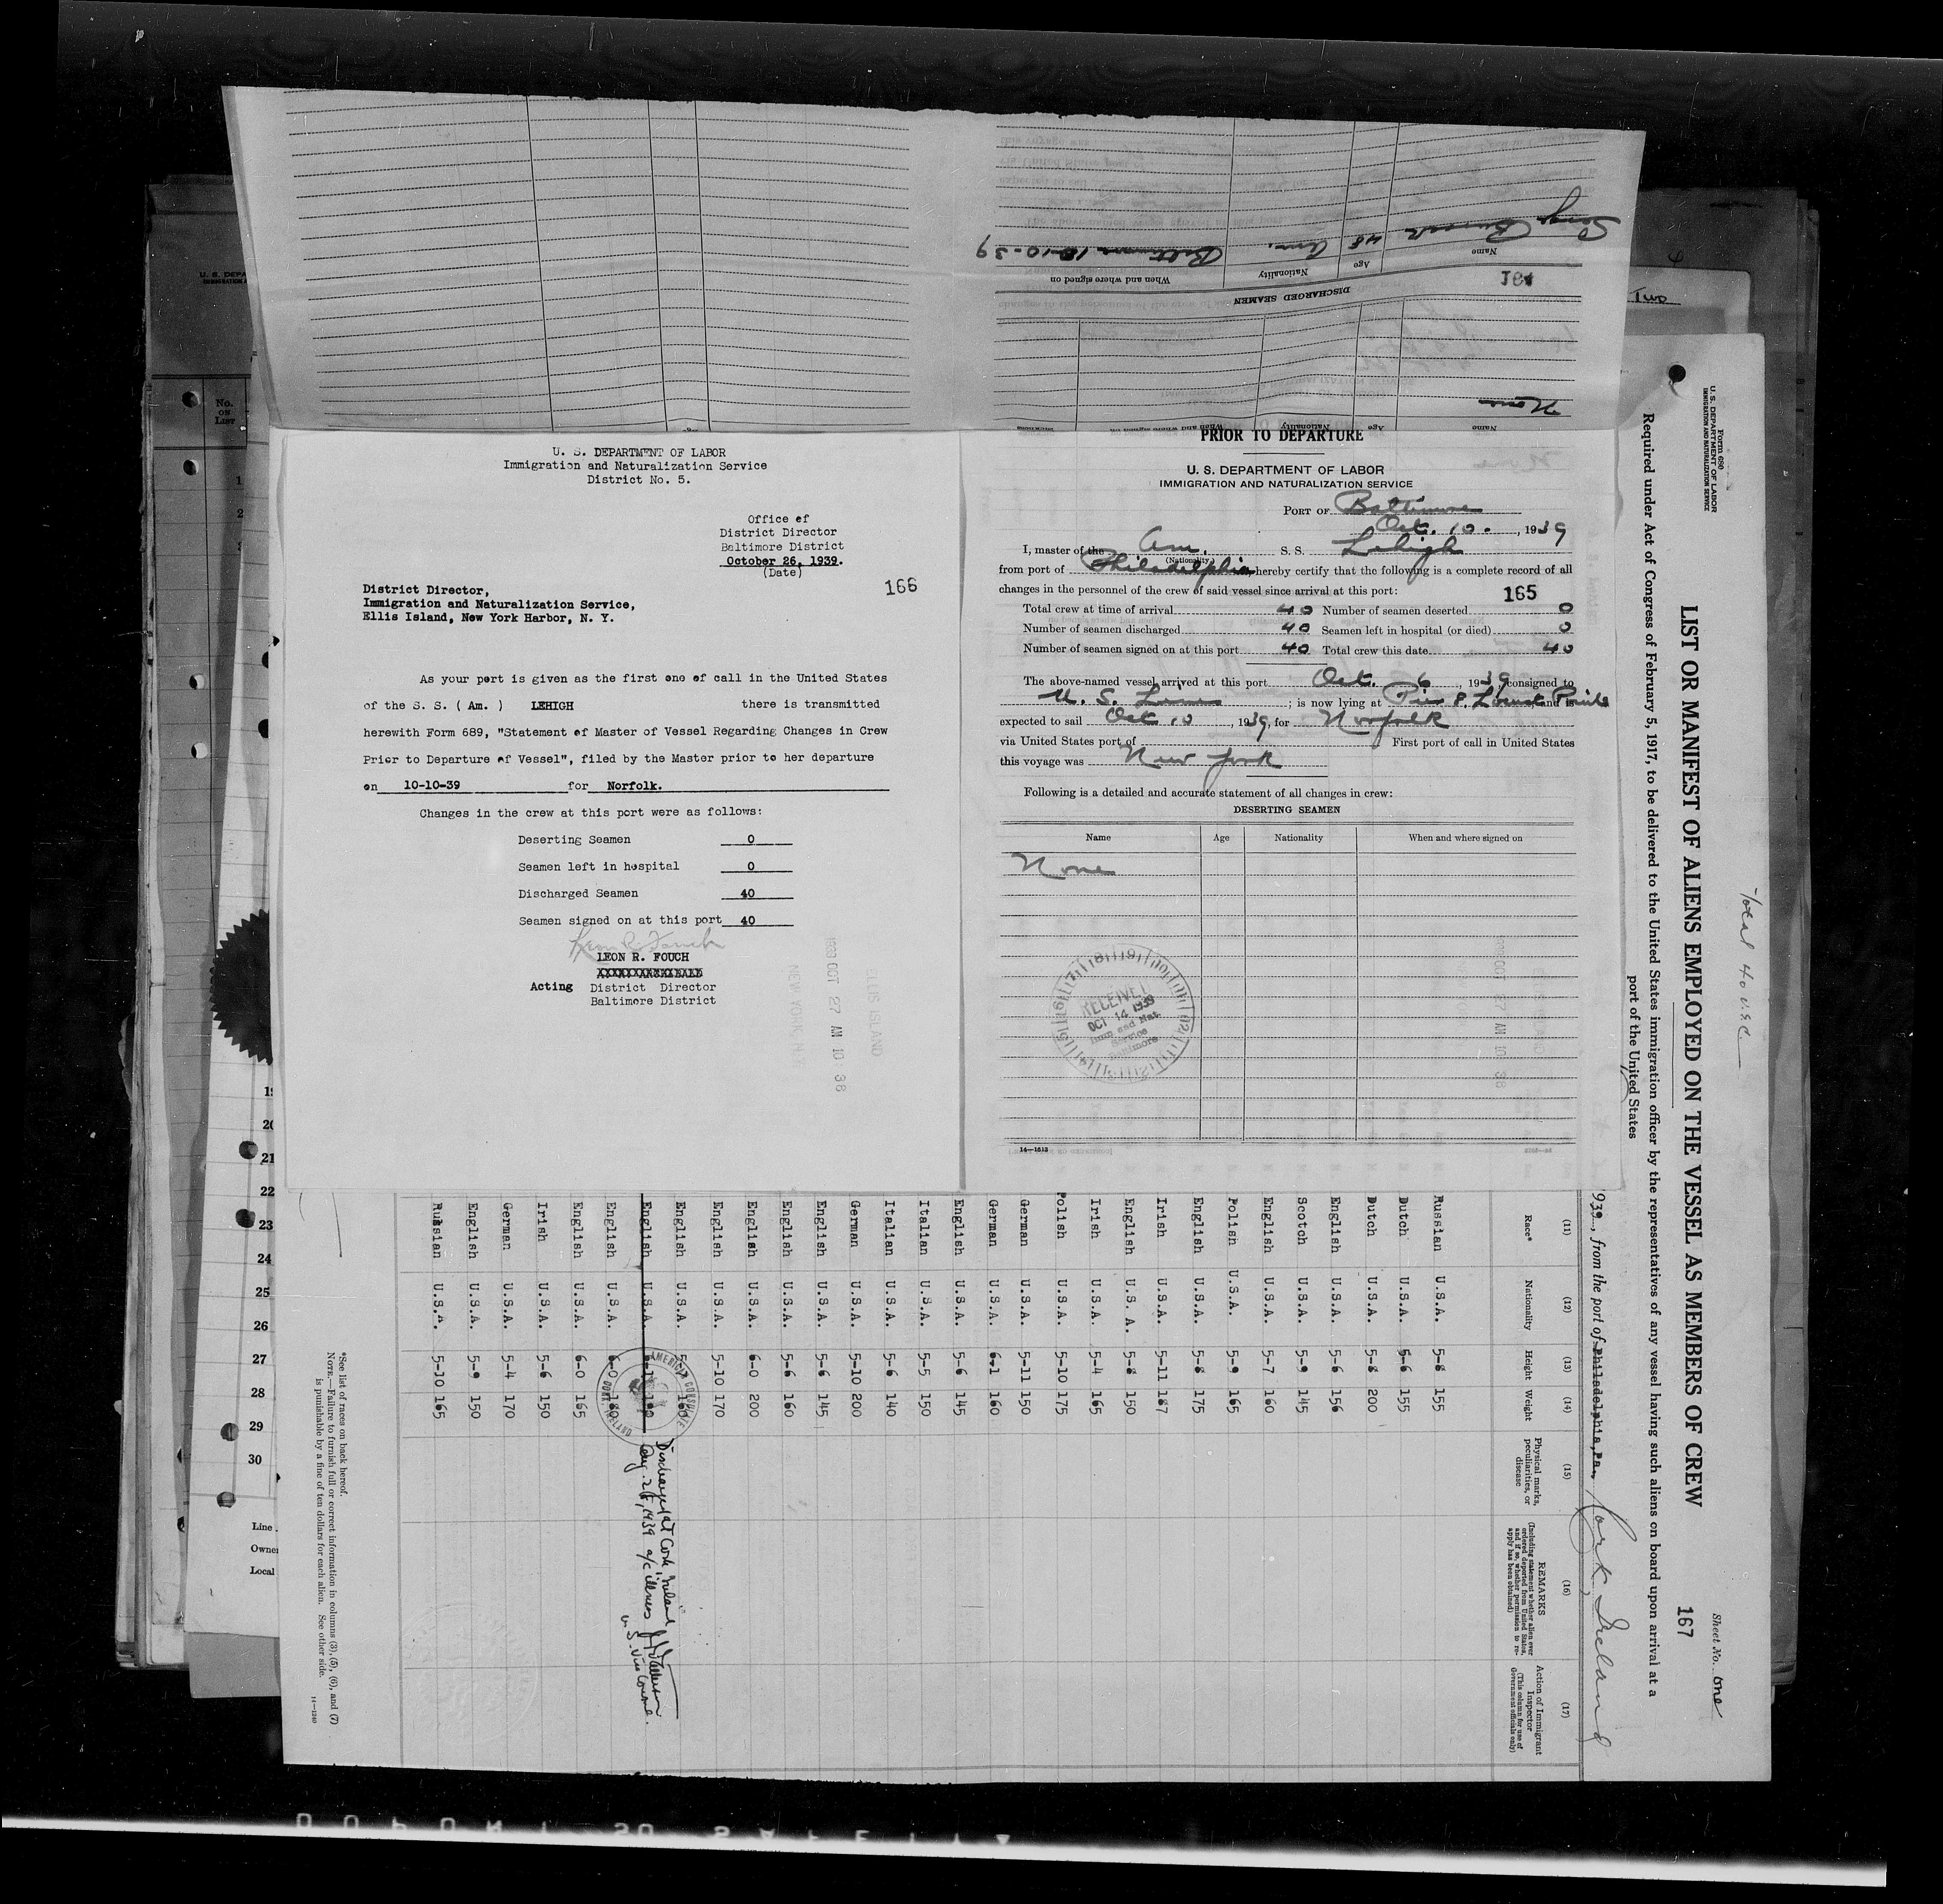 U. S. DEPARTMENT OF LABOR
Immigration and Naturalization Service
District No. 5.
Office of
District Director
Baltimore District
October 26, 1939.
(Date)
166
District Director,
Immigration and Naturalization Service,
Ellis Island, New York Harbor, N. Y.
As your port is given as the first one of call in the United States
of the S. S. ( Am. ) LEHIGH there is transmitted
herewith Form 689, "Statement of Master of Vessel Regarding Changes in Crew
Prior to Departure of Vessel", filed by the Master prior to her departure
on 10-10-39 for Norfolk.
Changes in the crew at this port were as follows:
Deserting Seamen 0
Seamen left in hospital 0
Discharged Seamen 40
Seamen signed on at this port 40
Leon R. Fouch
LEON R. FOUCH
Acting District Director
Baltimore District
1939 OCT 27 AM 10 38
ELLIS ISLAND
Name
Age
Nationality
When and where signed on
None
DISCHARGED SEAMEN
Name
Age
Nationality
When and where signed on
48 Am. Baltimore 10-10-39
PRIOR TO DEPARTURE
U. S. DEPARTMENT OF LABOR
IMMIGRATION AND NATURALIZATION SERVICE
PORT OF Baltimore
Oct. 10 - , 1939
I, master of the Am. S. S. Lehigh
(Nationality)
from port of Philadelphia, hereby certify that the following is a complete record of all
changes in the personnel of the crew of said vessel since arrival at this port:
165
Total crew at time of arrival 40 Number of seamen deserted 0
Number of seamen discharged 40 Seamen left in hospital (or died) 0
Number of seamen signed on at this port 40 Total crew this date 40
The above-named vessel arrived at this port Oct. 6, 1939, consigned to
U. S. Lines ; is now lying at Pier 8 Locust Point and is
expected to sail Oct 10, 1939, for Norfolk
via United States port of First port of call in United States
this voyage was New York
Following is a detailed and accurate statement of all changes in crew:
DESERTING SEAMEN
Name Age Nationality When and where signed on
None
RECEIVED
OCT 14 1939
Imm and Nat.
Service
Baltimore
14—1613
Form 680
U. S. DEPARTMENT OF LABOR
IMMIGRATION AND NATURALIZATION SERVICE
Total 40 U.S.C.
Sheet No. One
LIST OR MANIFEST OF ALIENS EMPLOYED ON THE VESSEL AS MEMBERS OF CREW
167
Required under Act of Congress of February 5, 1917, to be delivered to the United States immigration officer by the representatives of any vessel having such aliens on board upon arrival at a
port of the United States
939, from the port of Philadelphia, Pa., Cork, Ireland
(11) (12) (13) (14) (15) (16) (17)
Race*
Nationality
Height
Weight
Physical marks, peculiarities, or disease
REMARKS
(Including statement whether alien ever ordered deported from United States, and if so, whether permission to reapply has been obtained)
Action of Immigrant Inspector
(This column for use of Government officials only)
Russian U.S.A. 5-8 155
Dutch U.S.A. 5-6 155
Dutch U.S.A. 5-8 200
English U.S.A. 5-6 156
Scotch U.S.A. 5-9 145
English U.S.A. 5-7 160
Polish U.S.A. 5-9 165
English U.S.A. 5-8 175
Irish U.S.A. 5-11 187
English U.S. A. 5-8 150
Irish U.S.A. 5-4 165
Polish U.S.A. 5-10 175
German U.S.A. 5-11 150
German U.S.A. 6-1 160
English U.S.A. 5-6 145
Italian U.S.A. 5-5 150
Italian U.S.A. 5-6 140
German U.S.A. 5-10 200
English U.S.A. 5-6 145
English U.S.A. 5-6 160
English U.S.A. 6-0 200
English U.S.A. 5-10 170
English U.S.A. 5-7 160
English U.S.A.
English U.S.A. 6-0 180
English U.S.A. 6-0 165
Irish U.S.A. 5-6 150
German U.S.A. 5-4 170
English U.S.A. 5-9 150
Russian U.S.A. 5-10 165
AMERICAN CONSULATE
Discharged at Cork, Ireland
Aug. 28, 1939 a/c illness
U.S. Vice Consul.
*See list of races on back hereof.
NOTE.—Failure to furnish full or correct information in columns (3), (5), (6), and (7)
is punishable by a fine of ten dollars for each alien. See other side.
14—1240
Two
U. S. DEPA
No.
ON
LIST
1
2
20
21
22
23
24
25
26
27
28
29
30
Line
Owner
Local